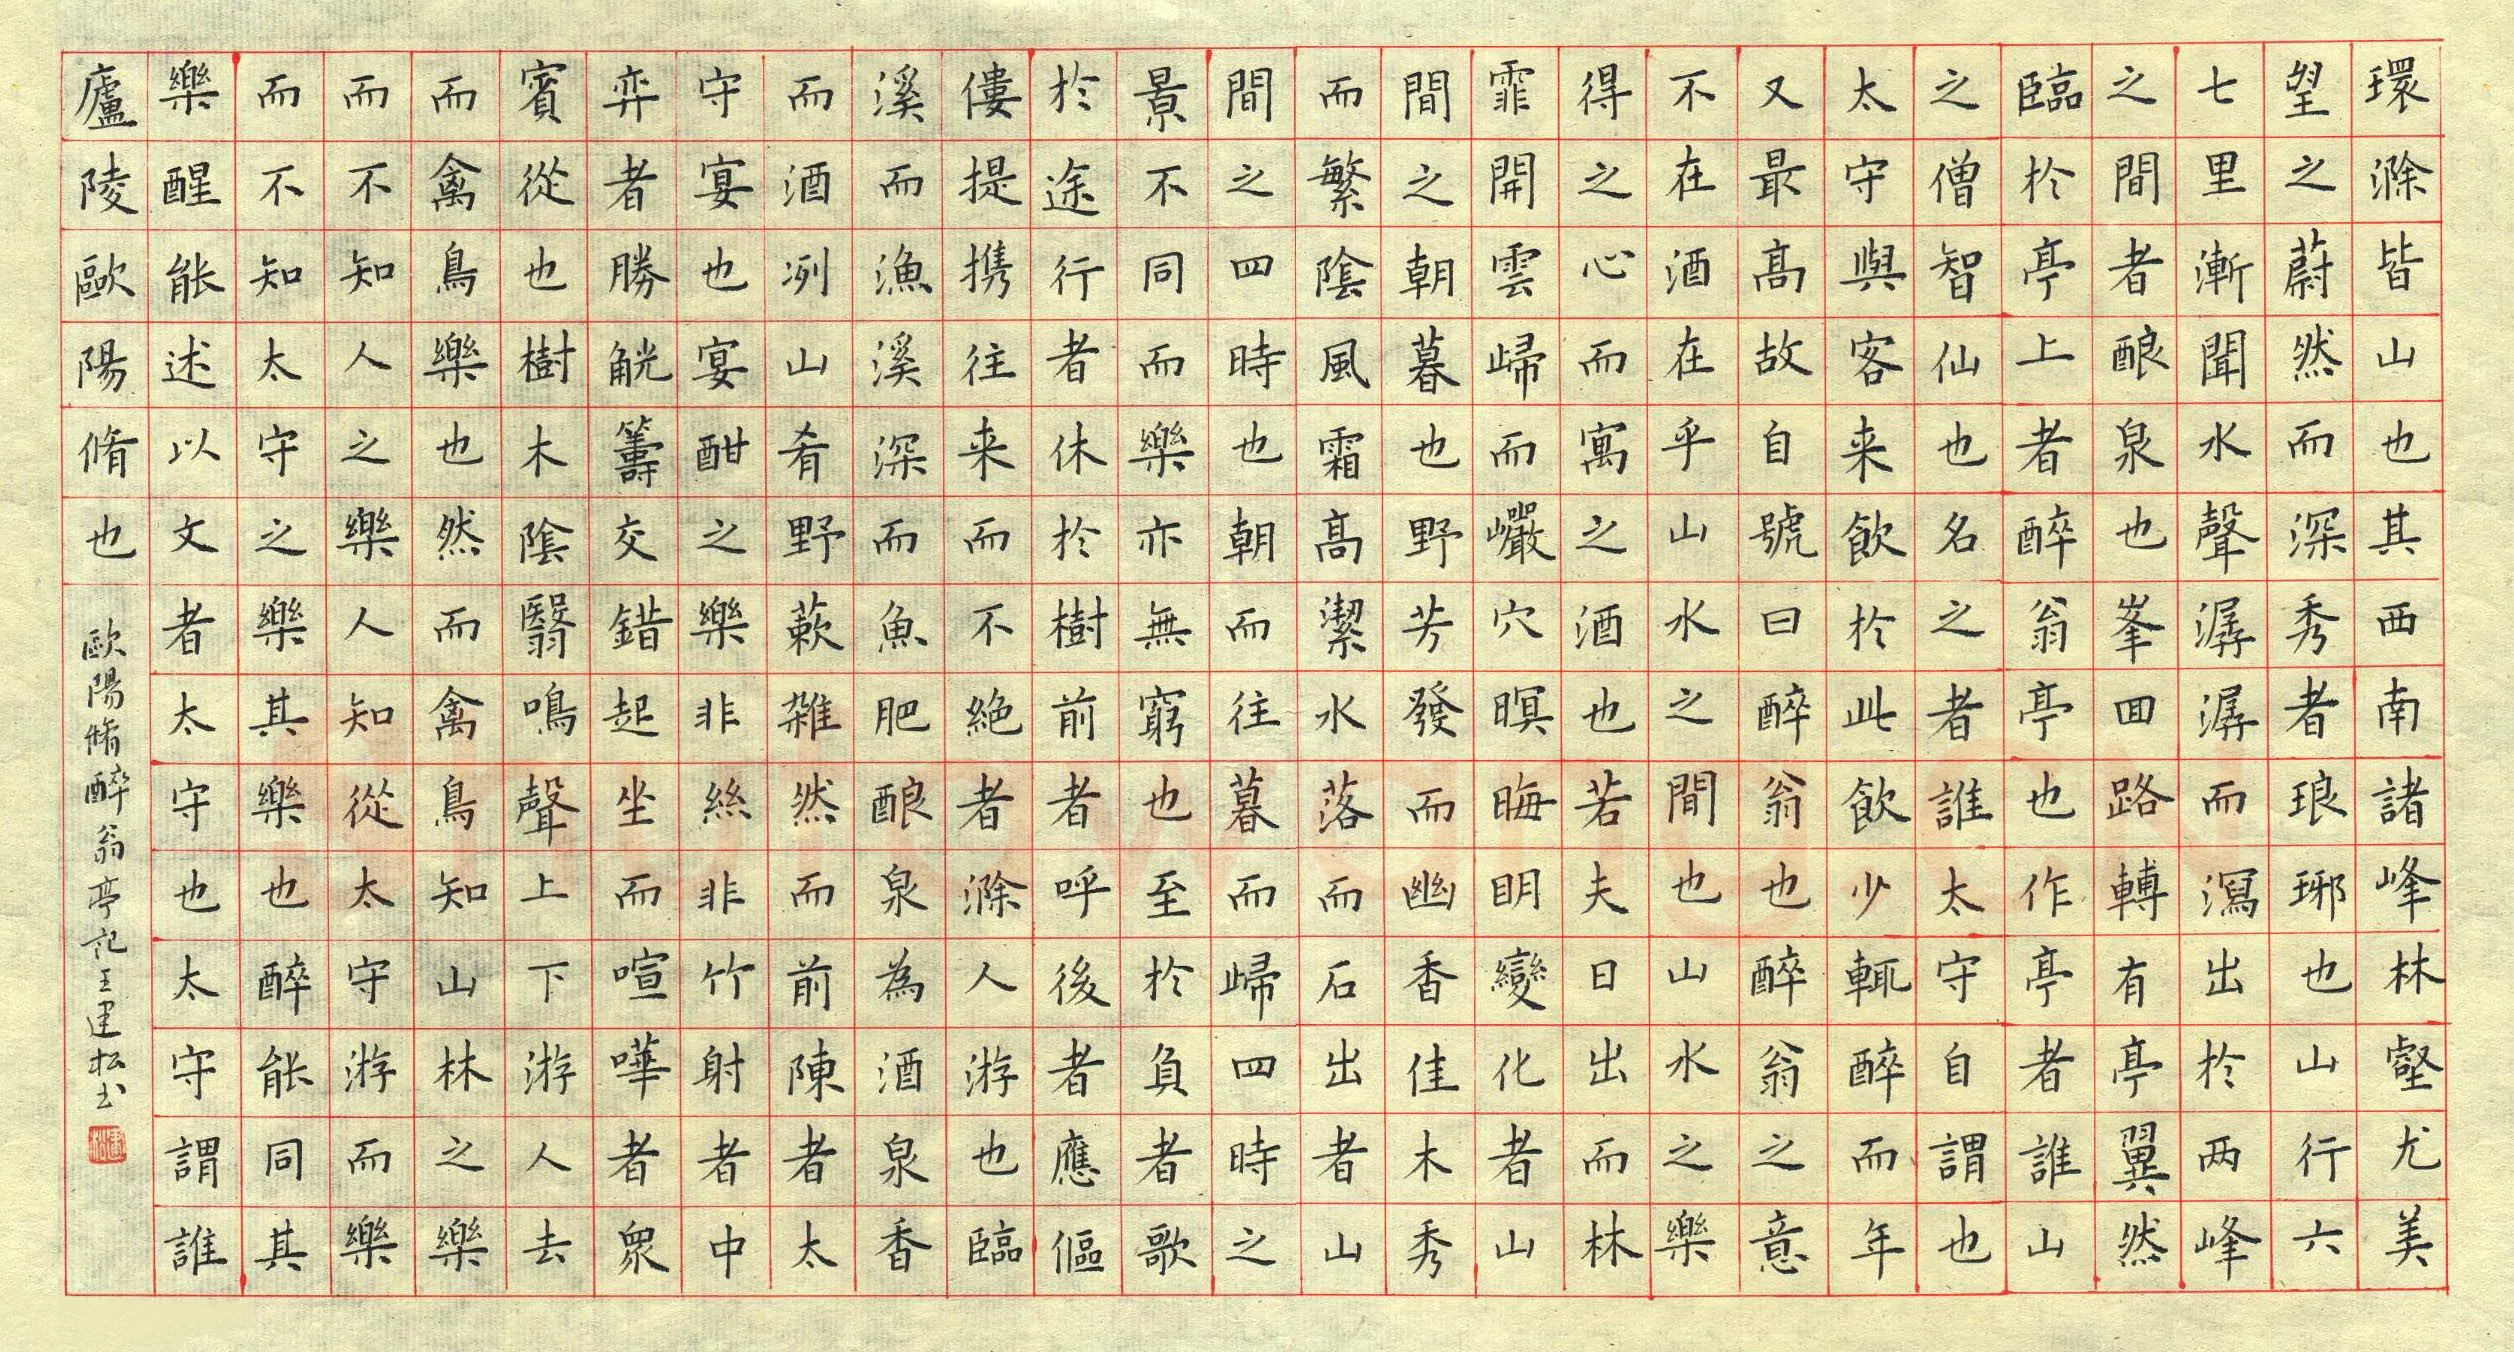 環滁皆山也其西南諸峰林壑尤美
望之蔚然而深秀者琅琊也山行六
七里漸聞水聲潺潺而瀉出於两峰
之間者酿泉也峯回路轉有亭翼然
臨於亭上者醉翁亭也作亭者誰山
之僧智仙也名之者誰太守自謂也
太守與客来飲於此飲少輒醉而年
又最高故自號曰醉翁也醉翁之意
不在酒在乎山水之間也山水之樂
得之心而寓之酒也若夫日出而林
霏開雲歸而巗穴暝晦明變化者山
間之朝暮也野芳發而幽香佳木秀
而繁陰風霜高潔水落而石出者山
間之四時也朝而往暮而歸四時之
景不同而樂亦無窮也至於負者歌
於途行者休於樹前者呼後者應傴
僂提携往来而不絕者滁人游也臨
溪而漁溪深而魚肥酿泉為酒泉香
而酒冽山肴野蔌雜然而前陳者太
守宴也宴酣之樂非絲非竹射者中
弈者勝觥籌交錯起坐而喧嘩者衆
賓從也樹木陰翳鳴聲上下游人去
而禽鳥樂也然而禽鳥知山林之樂
而不知人之樂人知從太守游而樂
而不知太守之樂其樂也醉能同其
樂醒能述以文者太守也太守謂誰
廬陵歐陽脩也
歐陽脩醉翁亭記王建松书